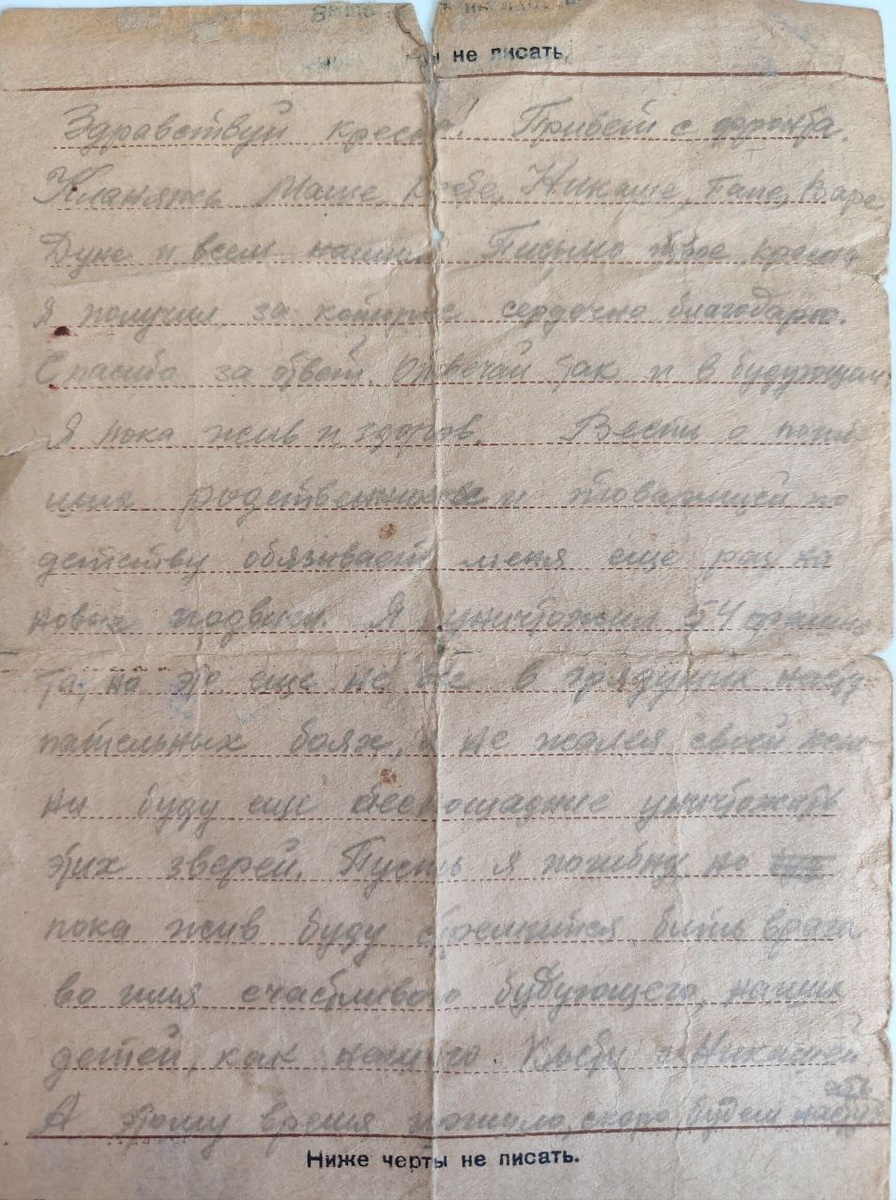 не писать.
Здравствуй кресна! Привет с фронта.
Кланяюсь Маше, Косте, Никаше, Гале, Варе,
Дуне и всем нашим. Письмо твое кресна
Я получил за которое сердечно благодарю.
Спасибо за ответ. Отвечай так и в будующем
Я пока жив и здоров. Вести о погиб-
ших родственниках и товарищей по
детству обязывает меня еще раз на
новые подвиги. Я уничтожил 54 фашис
та, но это еще не все в грядущих насту
пательных боях, и не жалея своей жиз-
ни буду еще беспощаднее уничтожать
этих зверей. Пусть я погибну но
пока жив буду стремится бить врага
во имя счастливого будующего, наших
детей, как нашего Кости и Никашки
А этому время пошло, скоро будем
Ниже черты не писать.